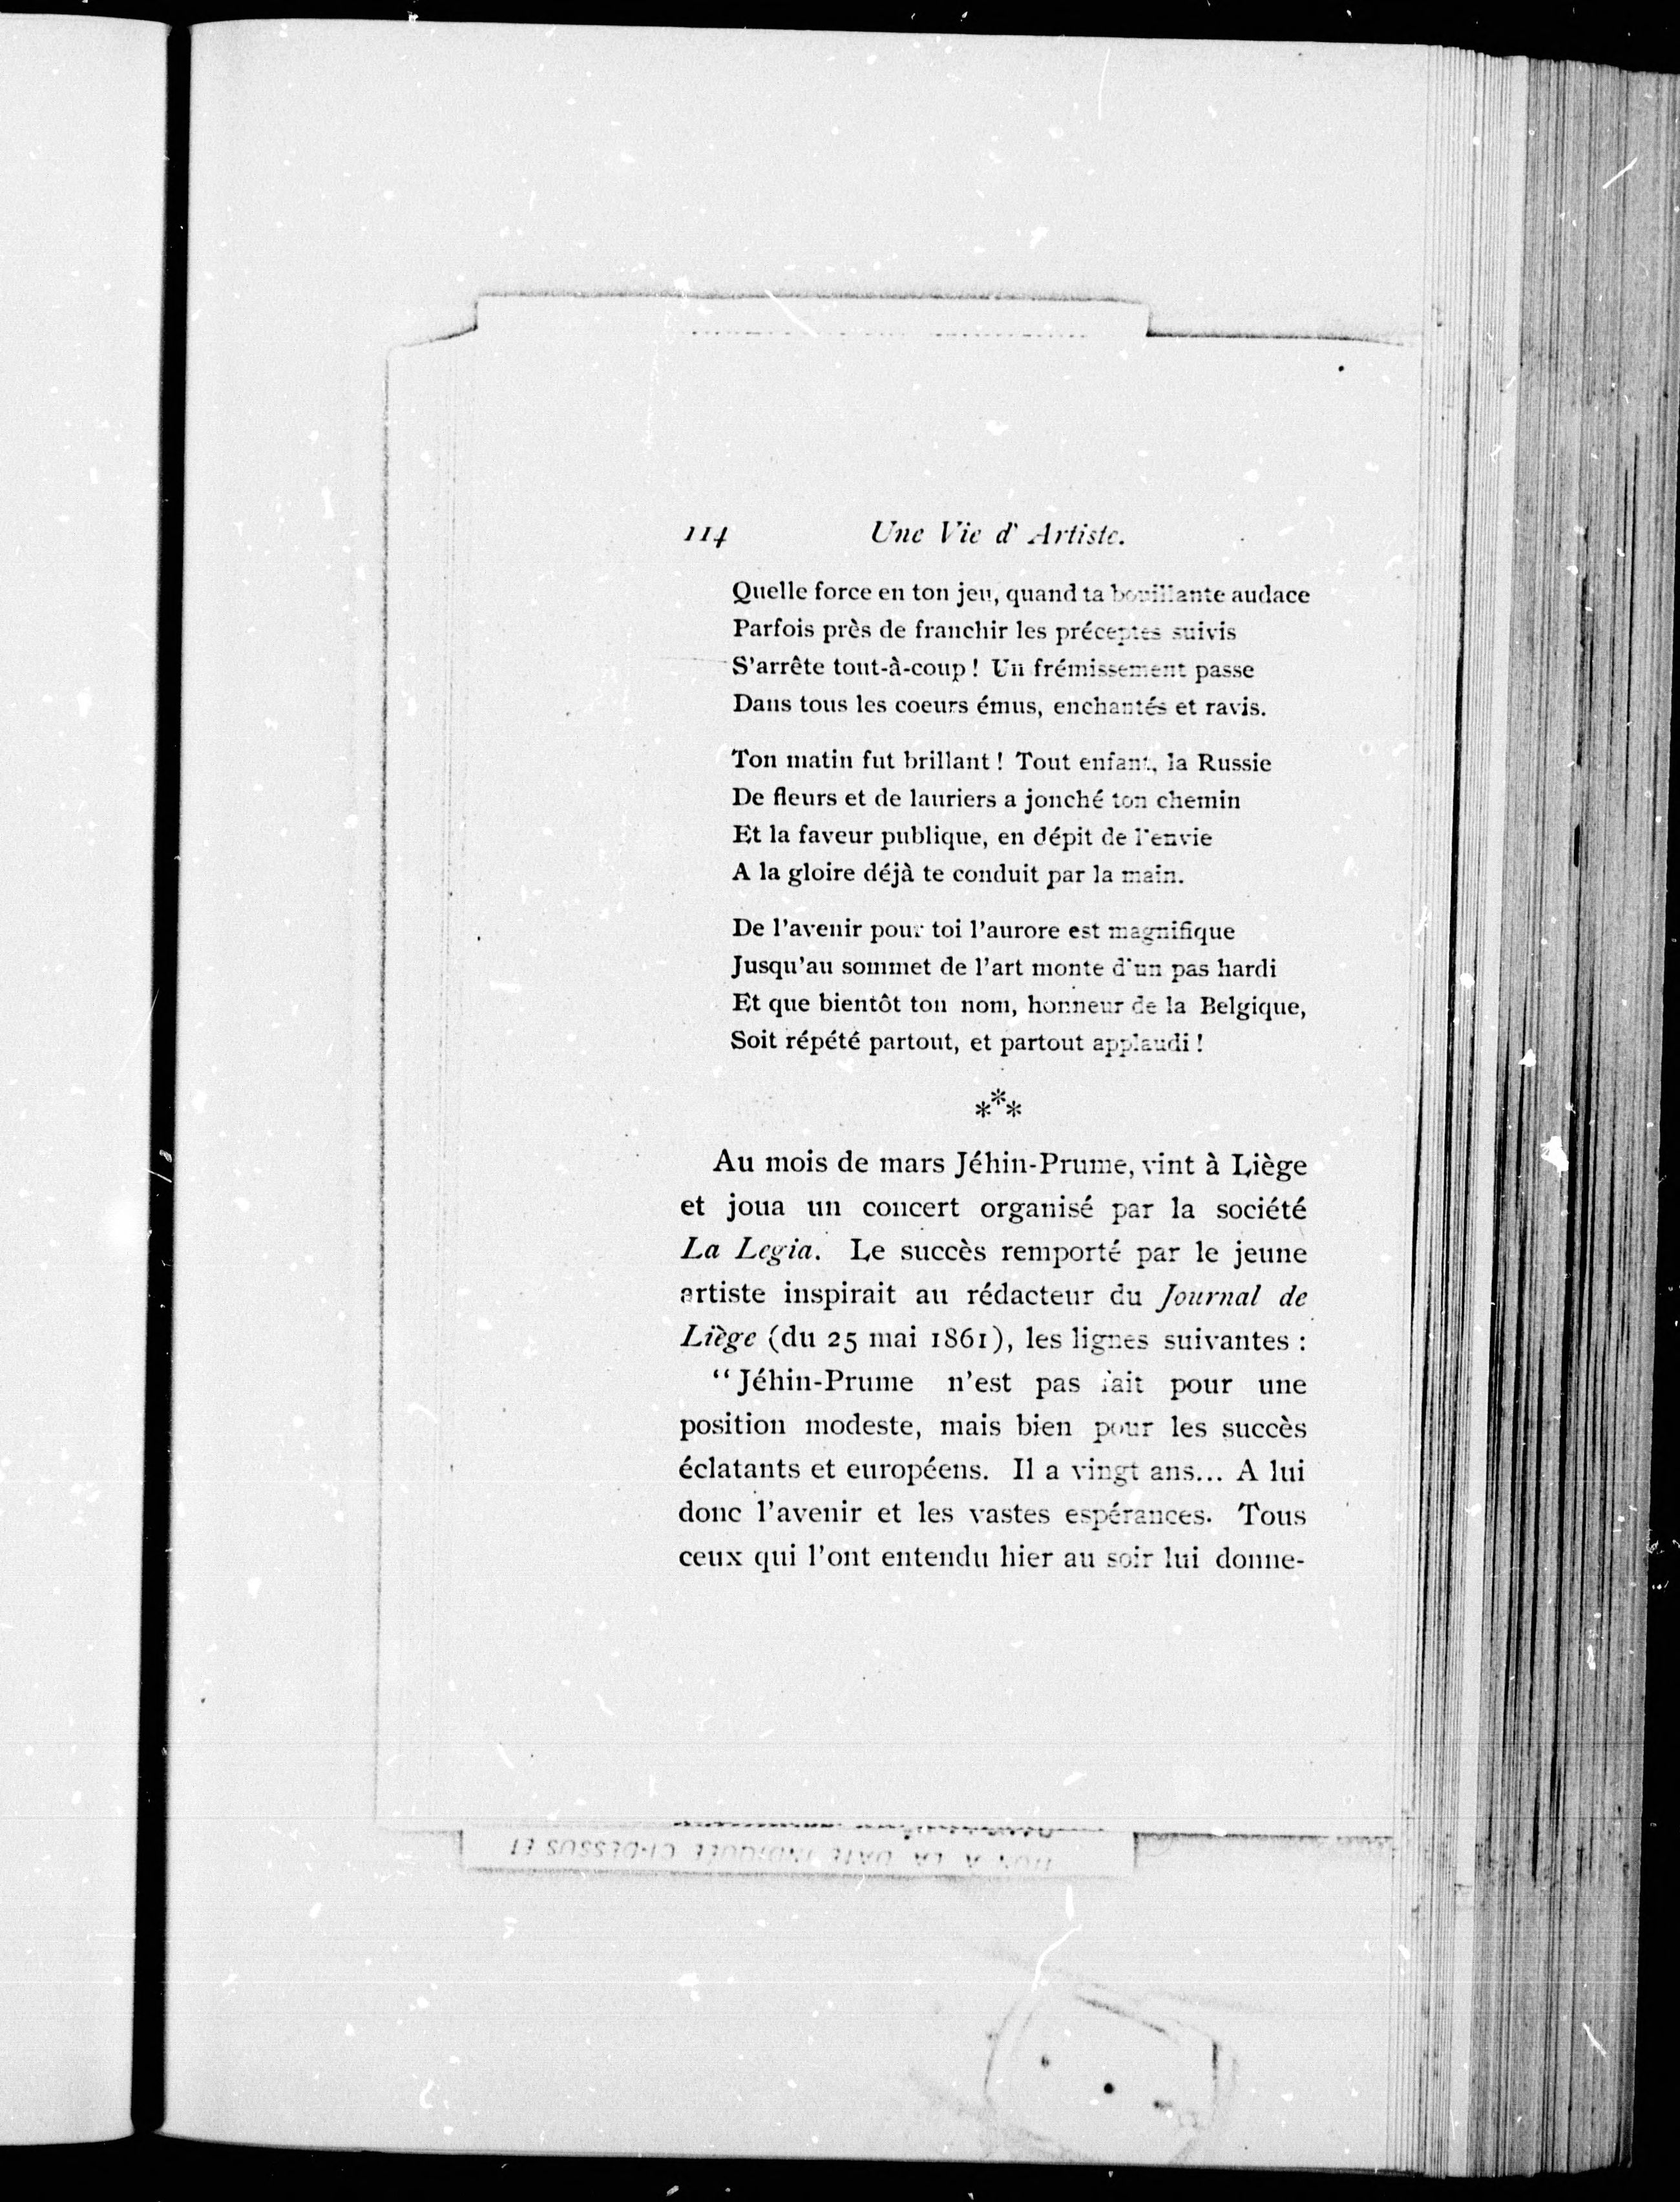 114 Une Vie d'Artiste.
Quelle force en ton jeu, quand ta bouillante audace
Parfois près de franchir les préceptes suivis
S'arrête tout-à-coup ! Un frémissement passe
Dans tous les coeurs émus, enchantés et ravis.
Ton matin fut brillant ! Tout enfant, la Russie
De fleurs et de lauriers a jonché ton chemin
Et la faveur publique, en dépit de l'envie
A la gloire déjà te conduit par la main.
De l'avenir pour toi l'aurore est magnifique
Jusqu'au sommet de l'art monte d'un pas hardi
Et que bientôt ton nom, honneur de la Belgique,
Soit répété partout, et partout applaudi !
***
Au mois de mars Jéhin-Prume, vint à Liège
et joua un concert organisé par la société
La Legia. Le succès remporté par le jeune
artiste inspirait au rédacteur du Journal de
Liège (du 25 mai 1861), les lignes suivantes :
“ Jéhin-Prume n'est pas fait pour une
position modeste, mais bien pour les succès
éclatants et européens. Il a vingt ans... A lui
donc l'avenir et les vastes espérances. Tous
ceux qui l'ont entendu hier au soir lui donne-
A LA DATE INDIQUÉE CI-DESSUS ET